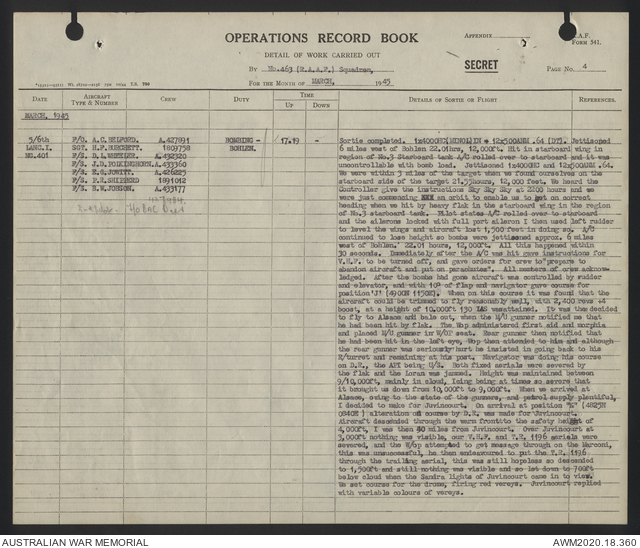 OPERATIONS RECORD BOOK
APPENDIX
R.A.F.
FORM 541.
DETAIL OF WORK CARRIED OUT
SECRET
BY No.463 (R.A.A.F.) Squadron,
PAGE No. 4
FOR THE MONTH OF MARCH, 1945
DATE AIRCRAFT TYPE & NUMBER CREW DUTY TIME UP DOWN DETAILS OF SORTIE OR FLIGHT REFERENCES.
MARCH, 1945
5/6th
LANC.I.
NG.401
F/O. A.C. HELFORD. A.427891
SGT. H.F. BENNETT. 1809758
F/S. D.L. WHEELER. A.432320
F/S. J.D. POLKINGHORN. A.433360
F/S. E.G. JOWITT. A.426225
F/S. F.E. SHIPPERD 1891012
F/S. B.W. JOBSON. A.433177
BOMBING -
BOHLEN.
17.19
Sortie completed. 1x4000HC(MINOL)IN + 12x500ANM.64 (DT). Jettisoned
6 miles west of Bohlen 22.01hrs, 12,000ft. Hit in starboard wing in
region of No.3 Starboard tank A/C rolled over to starboard and it was
uncontrollable with bomb load. Jettisoned 1x4000HC and 12x500ANM.64.
We were within 3 miles of the target when we found ourselves on the
starboard side of the target 21.55hours, 12,000 feet. We heard the
Controller give the instructions Sky Sky Sky at 2200 hours and we
were just commencing an orbit to enable us to get on correct
heading when we hit by heavy flak in the starboard wing in the region
of No.3 starboard tank. Pilot states A/C rolled over to starboard
and the ailerons locked with full port aileron I then used left rudder
to level the wings and aircraft lost 1,500 feet in doing so. A/C
continued to lose height so bombs were jettisoned approx. 6 miles
west of Bohlen. 22.01 hours, 12,000ft. All this happened within
30 seconds. Immediately after the A/C was hit gave instructions for
V.H.F. to be turned off, and gave orders for crew to "prepare to
abandon aircraft and put on parachutes". All members of crew acknow-
ledged. After the bombs had gone aircraft was controlled by rudder
and elevator, and with 10° of flap and navigator gave course for
position 'J' (4900N 1150E). When on this course it was found that the
aircraft could be trimmed to fly reasonably well, with 2,400 revs +4
boost, at a height of 10,000ft 130 IAS wasattained. It was decided
to fly to Alsace and bale out, when the M/U gunner notified me that
he had been hit by flak. The Wop administered first aid and morphia
and placed M/U gunner in W/OP seat. Rear gunner then notified that
he had been hit in the left eye, Wop then attended to him and although
the rear gunner was seriously hurt he insisted in going back to his
R/turret and remaining at his post. Navigator was doing his course
on D.R., the API being U/S. Both fixed aerials were severed by
the flak and the Loran was jammed. Height was maintained between
9/10,000ft, mainly in cloud, Icing being at times so severe that
it brought us down from 10,000ft to 9,000ft. When we arrived at
Alsace, owing to the state of the gunners, and petrol supply plentiful,
I decided to make for Juvincourt. On arrival at position
alteration of course by D.R. was made for Juvincourt.
Aircraft descended through the warm frontto the safety height of
4,000ft, I was then 40 miles from Juvincourt. Over Juvincourt at
3,000ft nothing was visible, our V.H.F. and T.R. 1196 aerials were
severed, and the W/op attempted to get message through on the Marconi,
this was unsuccessful, he then endeavoured to put the T.R. 1196
through the trailing aerial, this was still hopeless so descended
to 1,500ft and still nothing was visible and so let down to 700ft
below cloud when the Sandra lights of Juvincourt came in to view.
We set course for the drome, firing red vereys. Juvincourt replied
with variable colours of vereys.
AUSTRALIAN WAR MEMORIAL
AWM2020.18.360